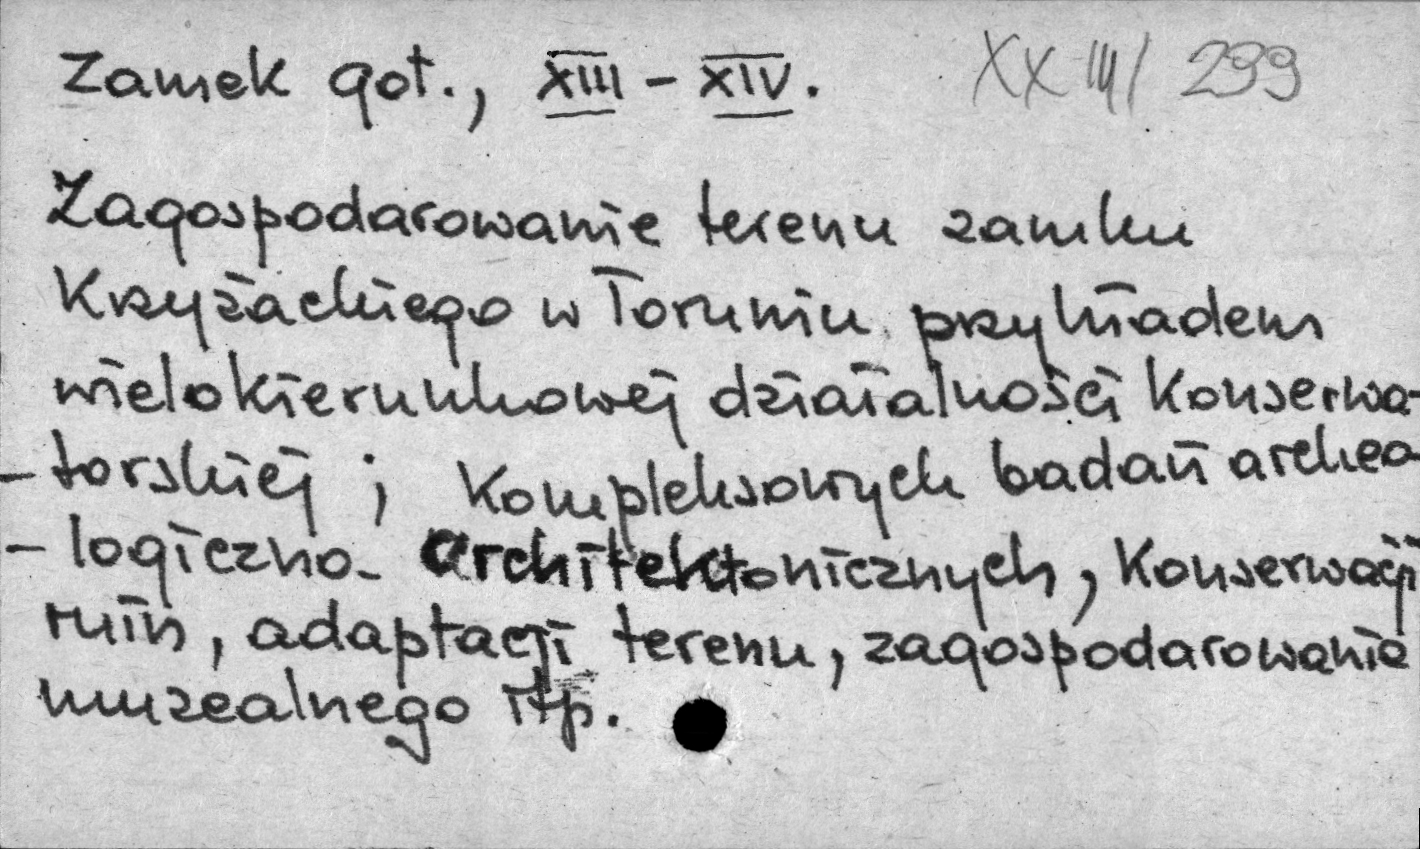 Zamek got., XIII - XIV. XXIII/299
Zagospodarowanie terenu zamku
Krzyżackiego w Toruniu przykładem
wielokierunkowej działalności konserwa-
- torskiej ; kompleksowych badań archeo
- logiczno- architektonicznych, konserwacji
ruin, adaptacji terenu, zagospodarowanie
muzealnego itp.